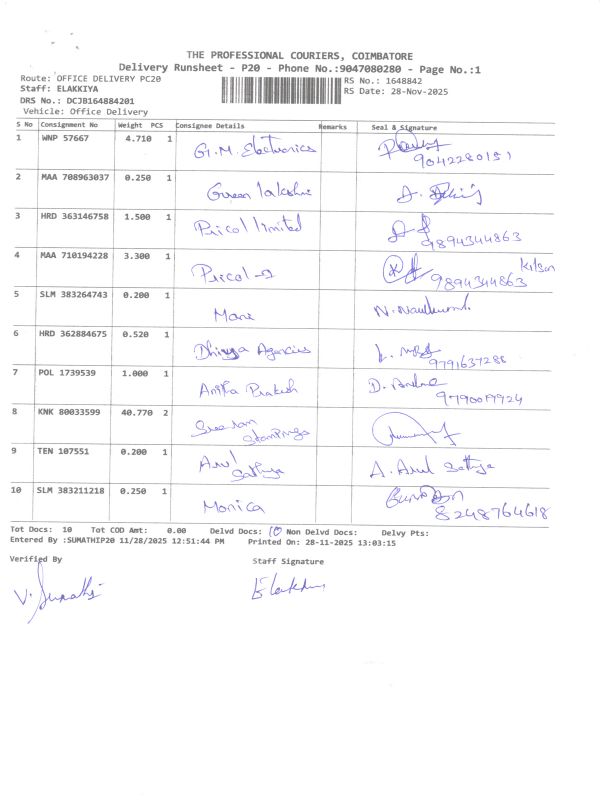 THE PROFESSIONAL COURIERS, COIMBATORE
Delivery Runsheet - P20 - Phone No.:9047080280 - Page No.:1
Route: OFFICE DELIVERY PC20 RS No.: 1648842
Staff: ELAKKIYA RS Date: 28-Nov-2025
DRS No.: DCJB164884201
Vehicle: Office Delivery
S No Consignment No Weight PCS Consignee Details Remarks Seal & Signature
1 WNP 57667 4.710 1 G.M. Electronics
9042280151
2 MAA 708963037 0.250 1 Green lakshmi
3 HRD 363146758 1.500 1 Pricol limited
9894344863
4 MAA 710194228 3.300 1 Pricol
9894344863
5 SLM 383264743 0.200 1 N.
6 HRD 362884675 0.520 1 Dhivya Agencies
9791637288
7 POL 1739539 1.000 1 Anitha Prakash D.
9790019924
8 KNK 80033599 40.770 2 Sree ram
Stampings
9 TEN 107551 0.200 1 Arul
Sathya A. Arul Sathya
10 SLM 383211218 0.250 1 Monica
8248764618
Tot Docs: 10 Tot COD Amt: 0.00 Delvd Docs: 10 Non Delvd Docs: Delvy Pts:
Entered By :SUMATHIP20 11/28/2025 12:51:44 PM Printed On: 28-11-2025 13:03:15
Verified By Staff Signature
V. Sumathi